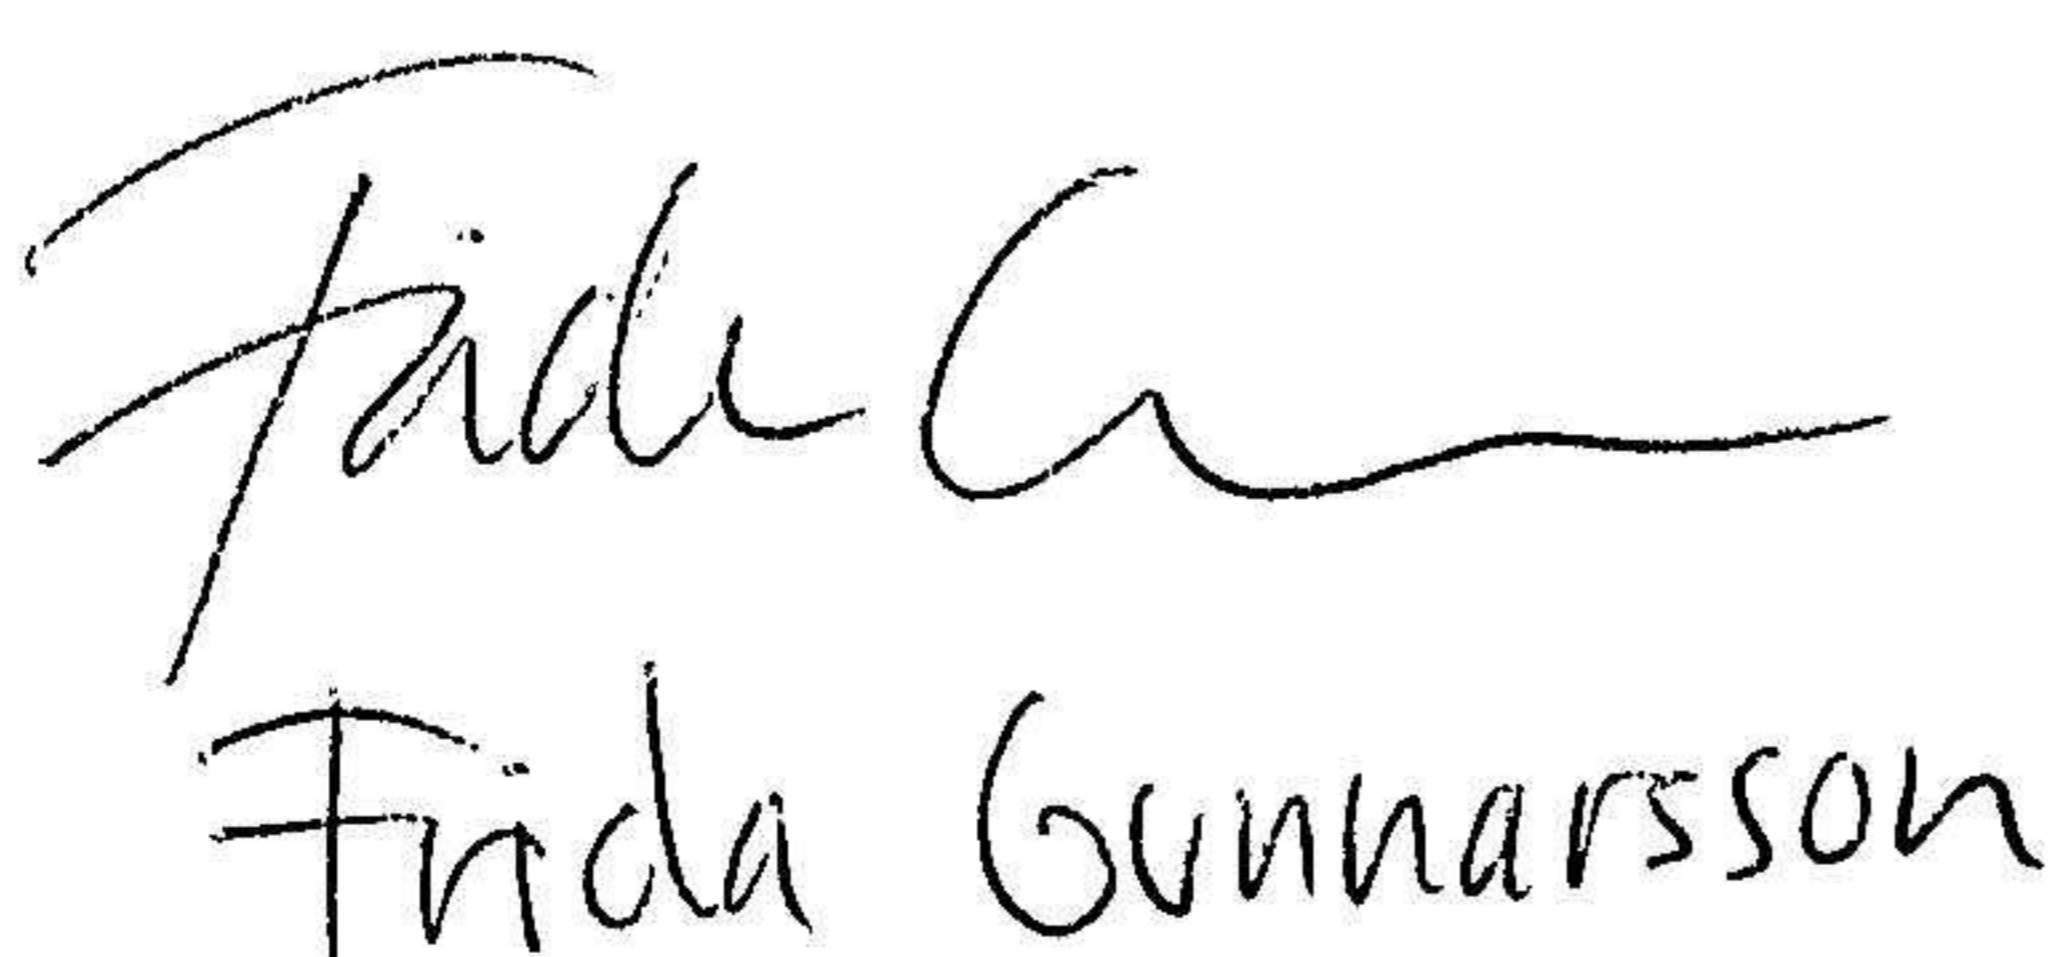 Frida G
Frida Gunnarsson